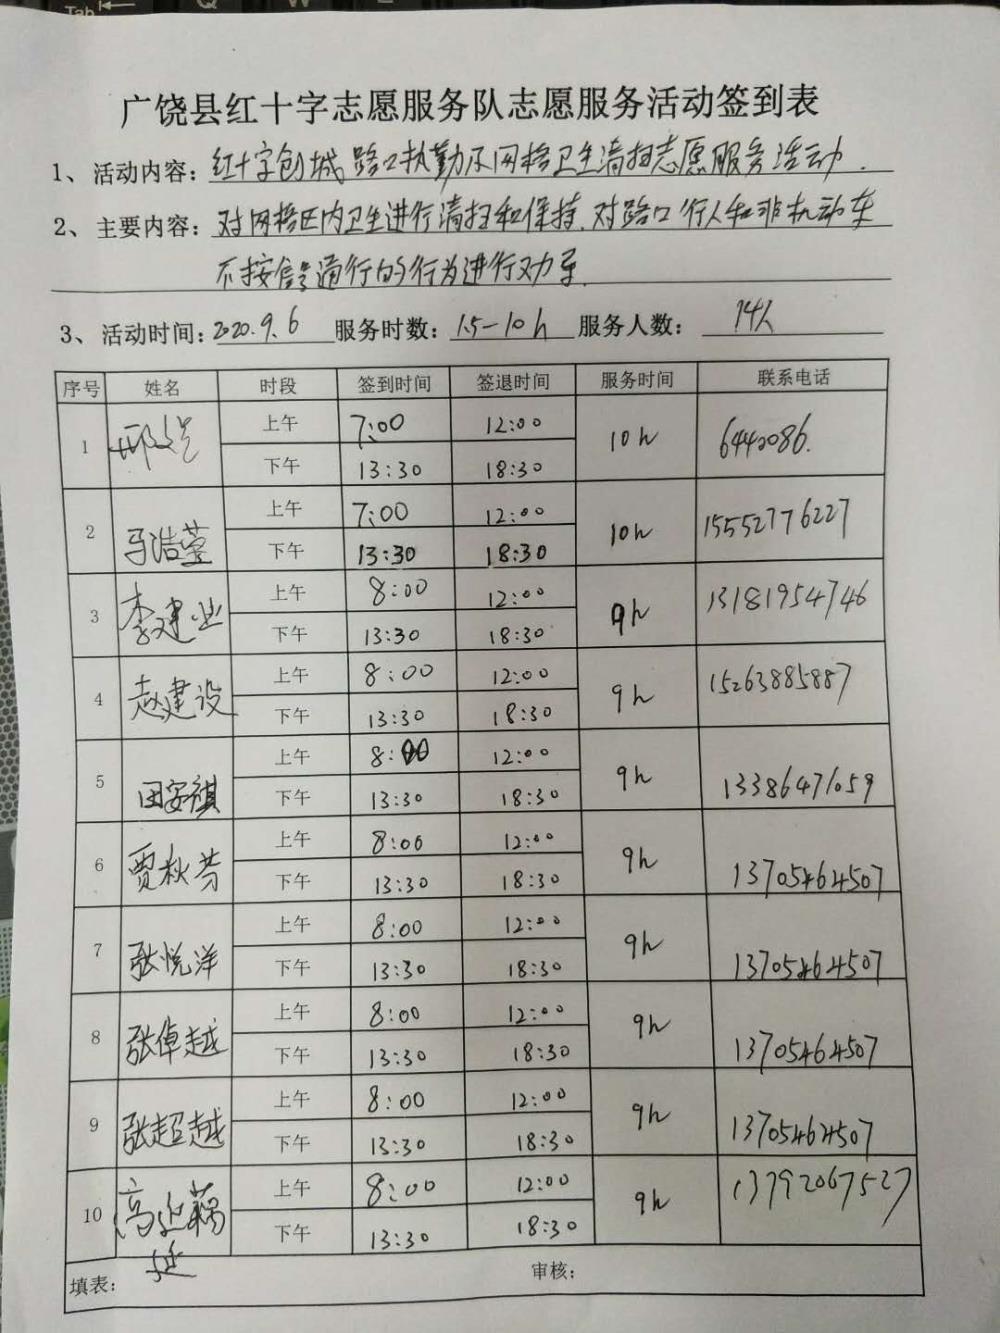 Tab
Q
W
广饶县红十字志愿服务队志愿服务活动签到表
1、活动内容：红十字创城路口执勤及网格卫生清扫志愿服务活动.
2、主要内容：对网格区内卫生进行清扫和保持.对路口行人和非机动车
不按信号通行的行为进行劝导.
3、活动时间：2020.9.6 服务时数：1.5-10h 服务人数：14人
序号 姓名 时段 签到时间 签退时间 服务时间 联系电话
1 上午 7:00 12:00 10h 6442086.
下午 13:30 18:30
2 马浩莹 上午 7:00 12:00 10h 15552776227
下午 13:30 18:30
3 李建业 上午 8:00 12:00 9h 13181954746
下午 13:30 18:30
4 赵建设 上午 8:00 12:00 9h 15263885887
下午 13:30 18:30
5 田安祺 上午 8:00 12:00 9h 13386471059
下午 13:30 18:30
6 贾秋芳 上午 8:00 12:00 9h 13705464507
下午 13:30 18:30
7 张悦洋 上午 8:00 12:00 9h 13705464507
下午 13:30 18:30
8 张倬越 上午 8:00 12:00 9h 13705464507
下午 13:30 18:30
9 张超越 上午 8:00 12:00 9h 13705464507
下午 13:30 18:30
10 高 上午 8:00 12:00 9h 13792067527
下午 13:30 18:30
延
填表： 审核：